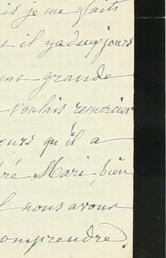 is je me flatte
il y a deux jours
une grande
voulais remercier
ours qu'il a
ré Mari, bien
l nous avons
comprendre.